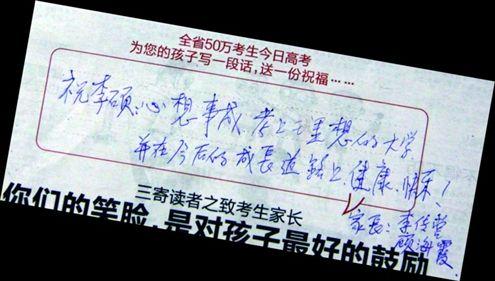 全省50万考生今日高考
为您的孩子写一段话，送一份祝福……
祝李硕：心想事成、考上理想的大学
并在今后的成长道路上、健康、快乐！
家长：李传营
顾海霞
三寄读者之致考生家长
你们的笑脸，是对孩子最好的鼓励